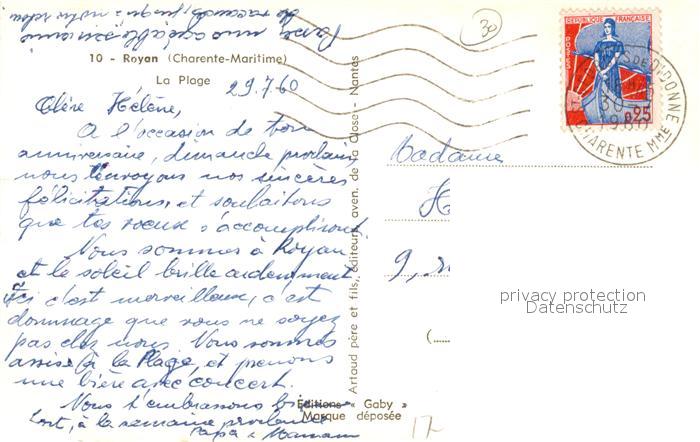 10 - Royan (Charente-Maritime)
La Plage
29.7.60
Chère Hélène,
A l'occasion de ton
anniversaire, dimanche prochain
nous t'envoyons nos sincères
félicitations et souhaitons
que tes voeux s'accomplissent
Nous sommes à Royan
et le soleil brille ardemment
Ici c'est merveilleux, c'est
dommage que vous ne soyez
pas chez nous. Nous sommes
assis à la Plage, et prenons
une bière avec concert.
Nous t'embrassons bien
fort, à la semaine prochaine
Papa & Maman
Artaud père et fils, éditeurs, aven. de la Close - Nantes
Editions Gaby »
Marque déposée
30
REPUBLIQUE FRANÇAISE
POSTES
0,25
DE DIDONNE
30
1960
CHARENTE MME
Madame
H
9,
(....
privacy protection
Datenschutz
17